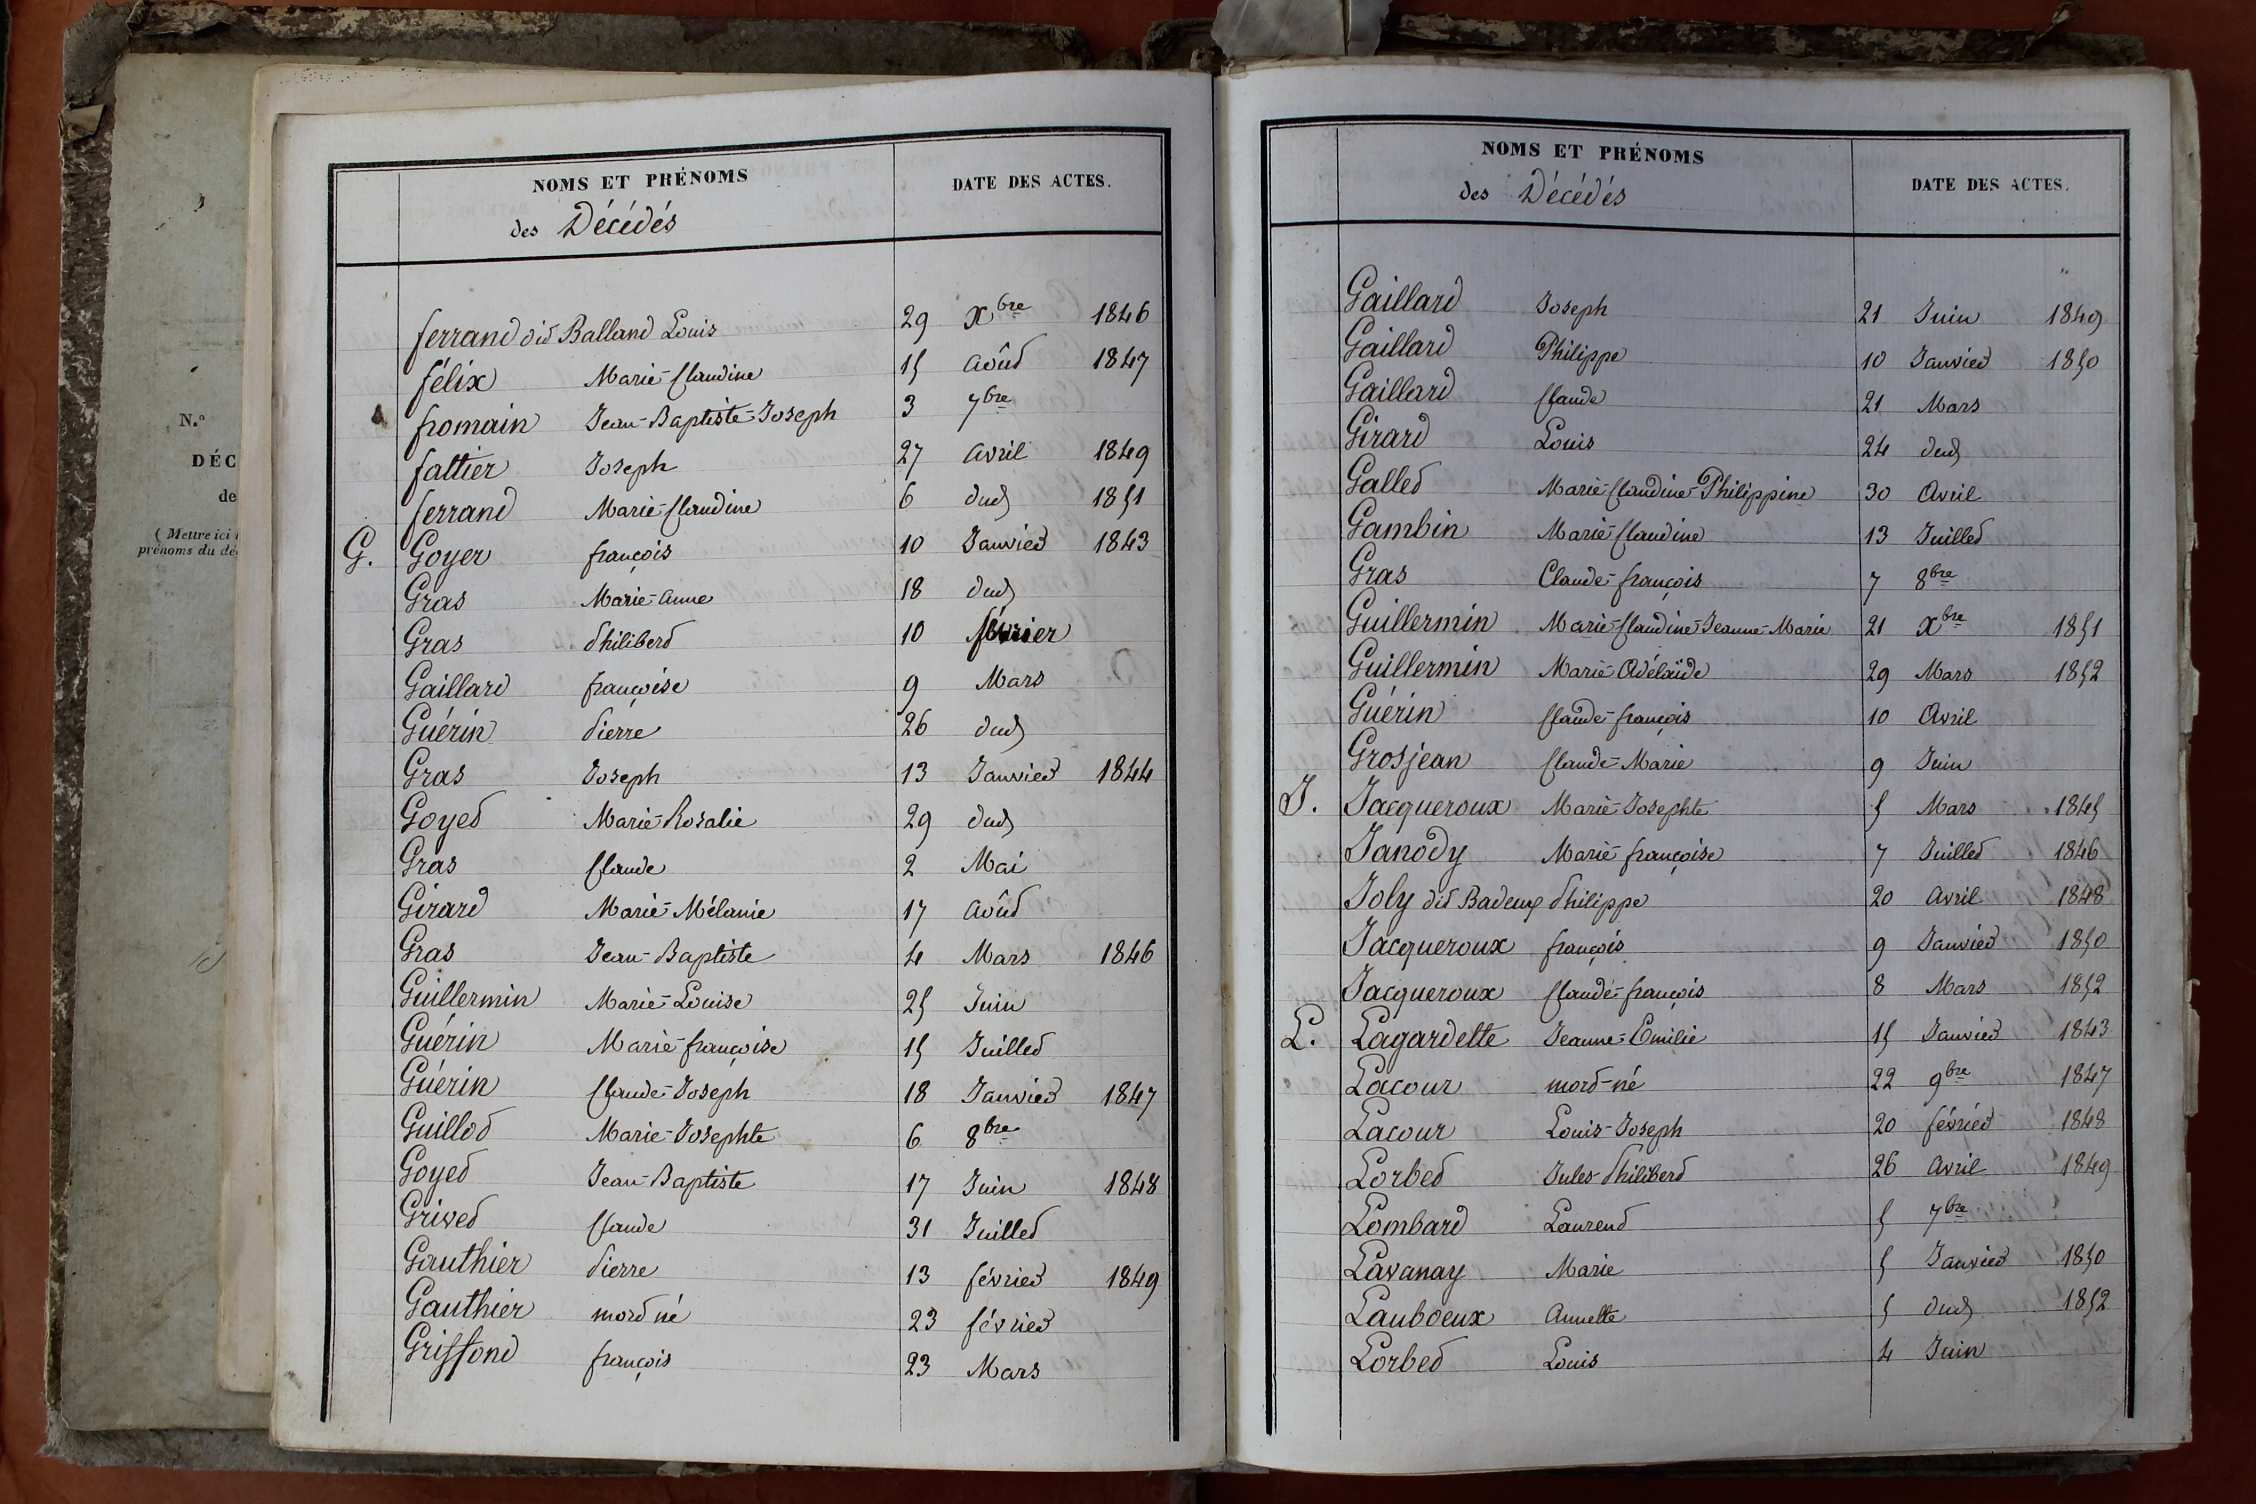 N.°
DÉC
de
( Mettre ici
prénoms du dé
NOMS ET PRÉNOMS
DATE DES ACTES.
des Décédés
ferrand dit Balland Louis 29 Xbre 1846
félix Marie-Claudine 15 Août 1847
fromain Jean-Baptiste-Joseph 3 7bre
fattier Joseph 27 Avril 1849
ferrand Marie-Claudine 6 dud 1851
G. Goyer françois 10 Janvier 1843
Gras Marie-Anne 18 dud
Gras Philibert 10 février
Gaillard françoise 9 Mars
Guérin Pierre 26 dud
Gras Joseph 13 Janvier 1844
Goyet Marie-Rosalie 29 dud
Gras Claude 2 Mai
Girard Marie-Mélanie 17 Août
Gras Jean-Baptiste 4 Mars 1846
Guillermin Marie-Louise 25 Juin
Guérin Marie-françoise 15 Juillet
Guérin Claude-Joseph 18 Janvier 1847
Guillot Marie-Josephte 6 8bre
Goyet Jean-Baptiste 17 Juin 1848
Grivet Claude 31 Juillet
Gauthier Pierre 13 février 1849
Gauthier mort né 23 février
Griffond françois 23 Mars
NOMS ET PRÉNOMS
DATE DES ACTES.
des Décédés
Gaillard Joseph 21 Juin 1849
Gaillard Philippe 10 Janvier 1850
Gaillard Claude 21 Mars
Girard Louis 24 dud
Gallet Marie-Claudine-Philippine 30 Avril
Gambin Marie-Claudine 13 Juillet
Gras Claude-françois 7 8bre
Guillermin Marie-Claudine-Jeanne-Marie 21 Xbre 1851
Guillermin Marie-Adélaïde 29 Mars 1852
Guérin Claude-françois 10 Avril
Grosjean Claude-Marie 9 Juin
J. Jacqueroux Marie-Josephte 5 Mars 1845
Janody Marie-françoise 7 Juillet 1846
Joly dit Badeux Philippe 20 Avril 1848
Jacqueroux françois 9 Janvier 1850
Jacqueroux Claude-françois 8 Mars 1852
L. Lagardette Jeanne-Emilie 15 Janvier 1843
Lacour mort-né 22 9bre 1847
Lacour Louis-Joseph 20 février 1848
Lorbet Jules-Philibert 26 Avril 1849
Lombard Laurent 5 7bre
Lavanay Marie 5 Janvier 1850
Lauboeux Annette 5 dud 1852
Lorbet Louis 4 Juin